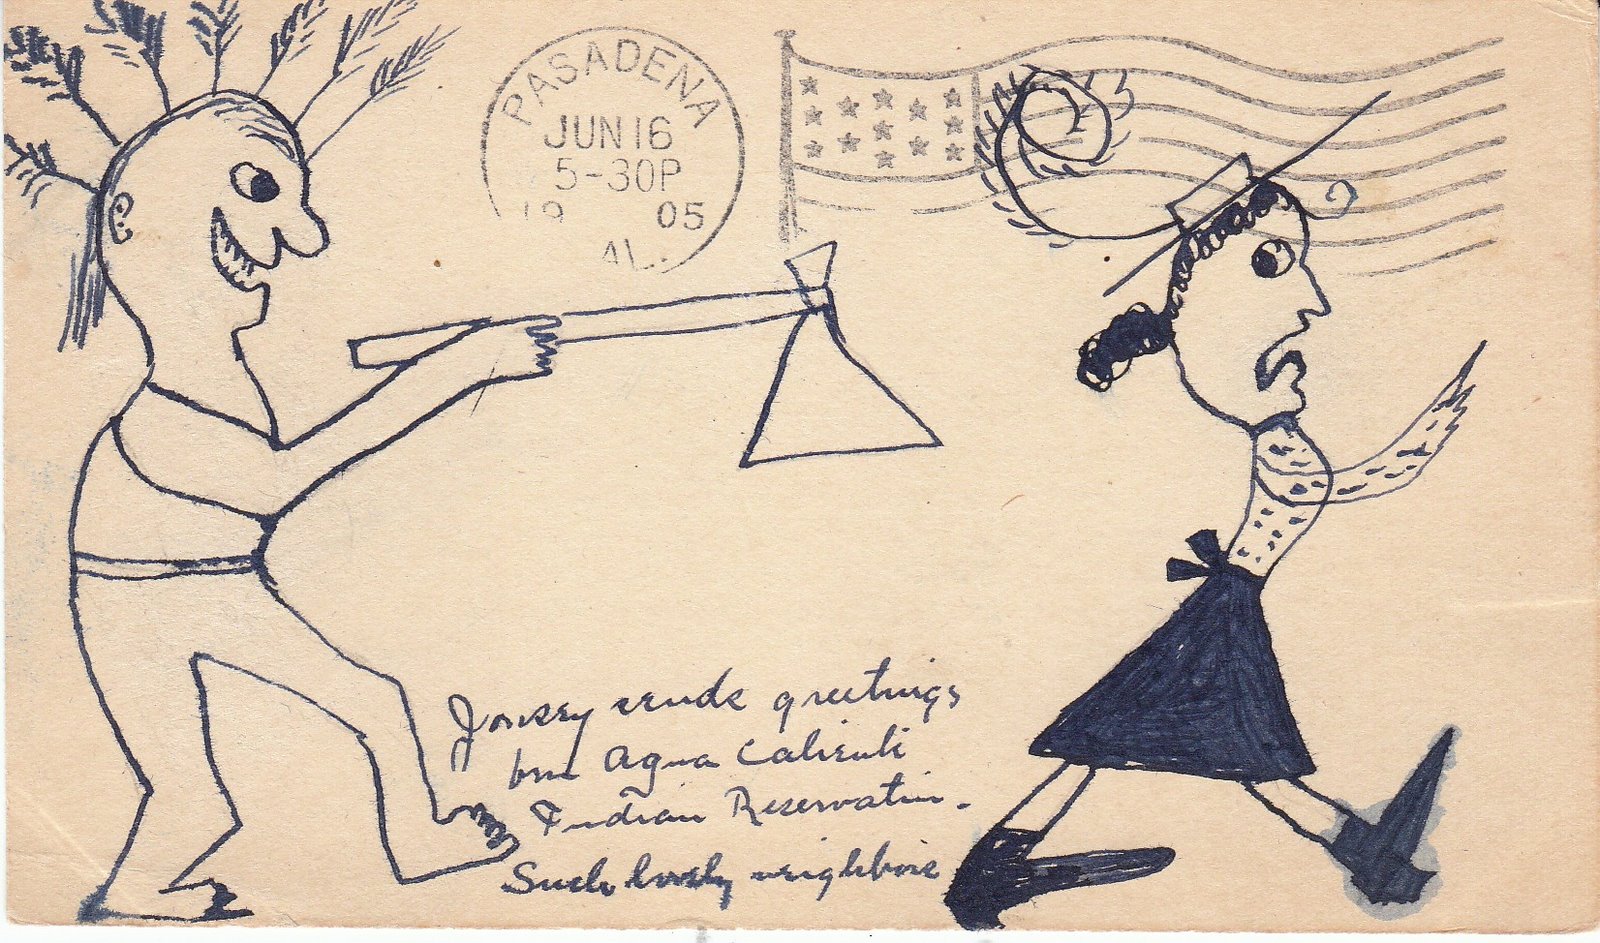 PASADENA
JUN 16
5-30P
19 05
AL.
sends greetings
from Agua Caliente
Indian Reservation.
Such lovely neighbors